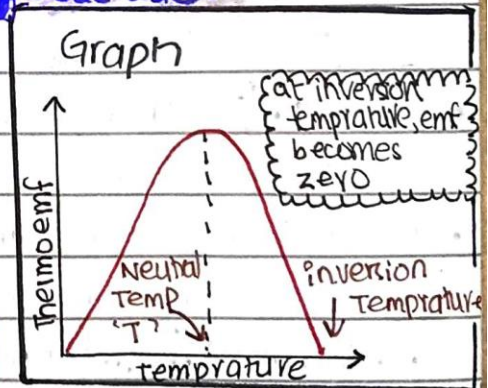 Graph
at inversion
temprature, emf
becomes
zero
Thermoemf
Neutral
Temp
'T'
inversion
Temprature
Temprature